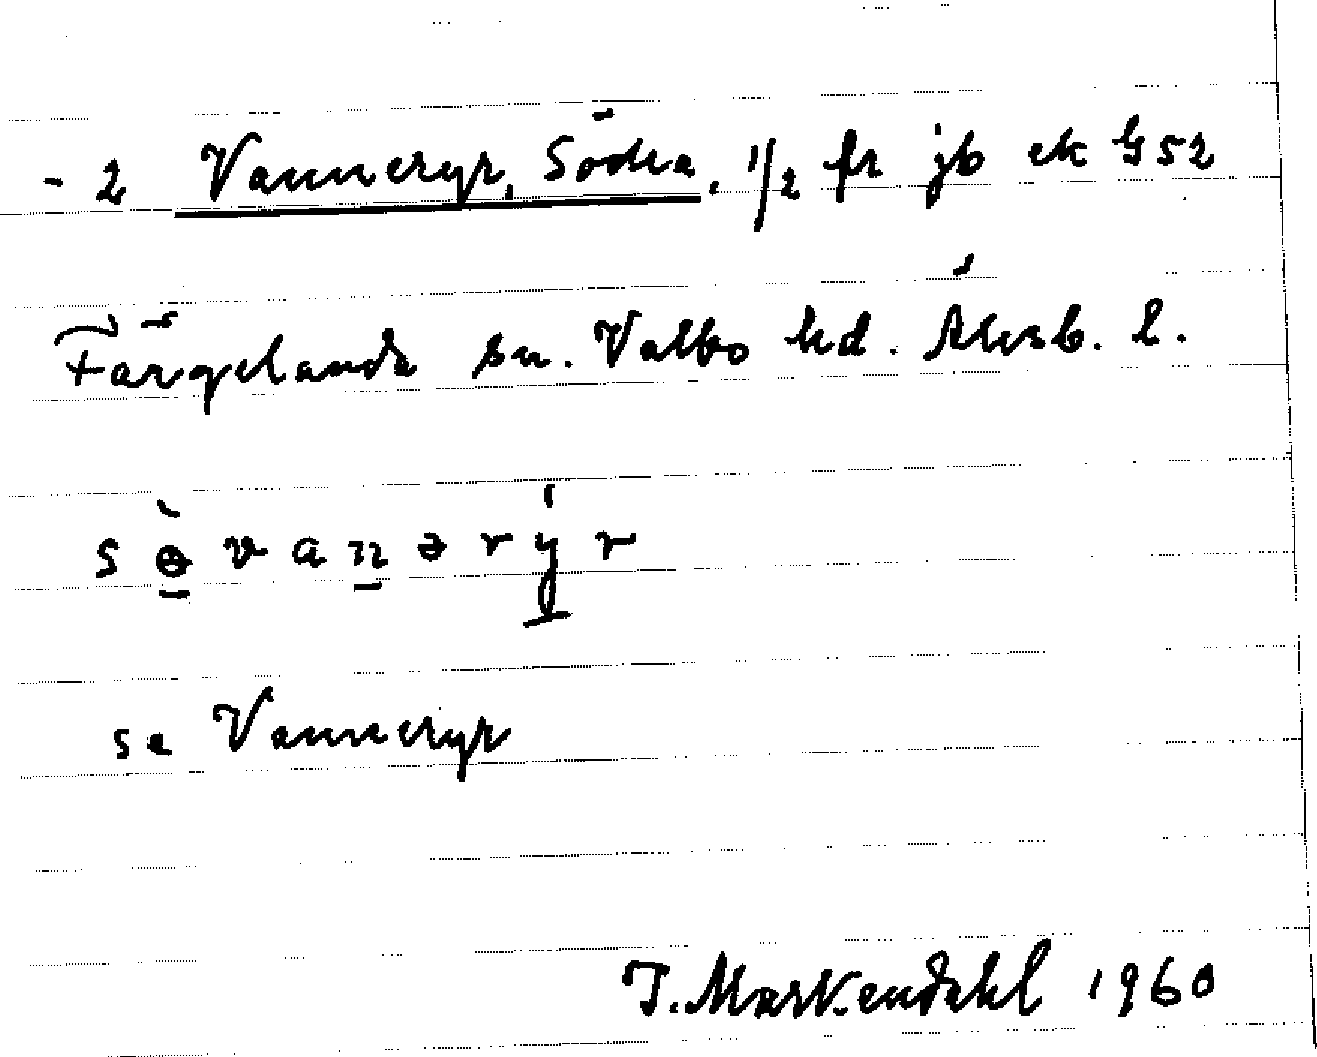 - 2 Vanneryr, Södra, 1/2 fr jb ek G52
Färgelanda sn. Valbo hd. Älvsb. l.
sə̀vanərýr
se Vanneryr
J. Markendahl 1960